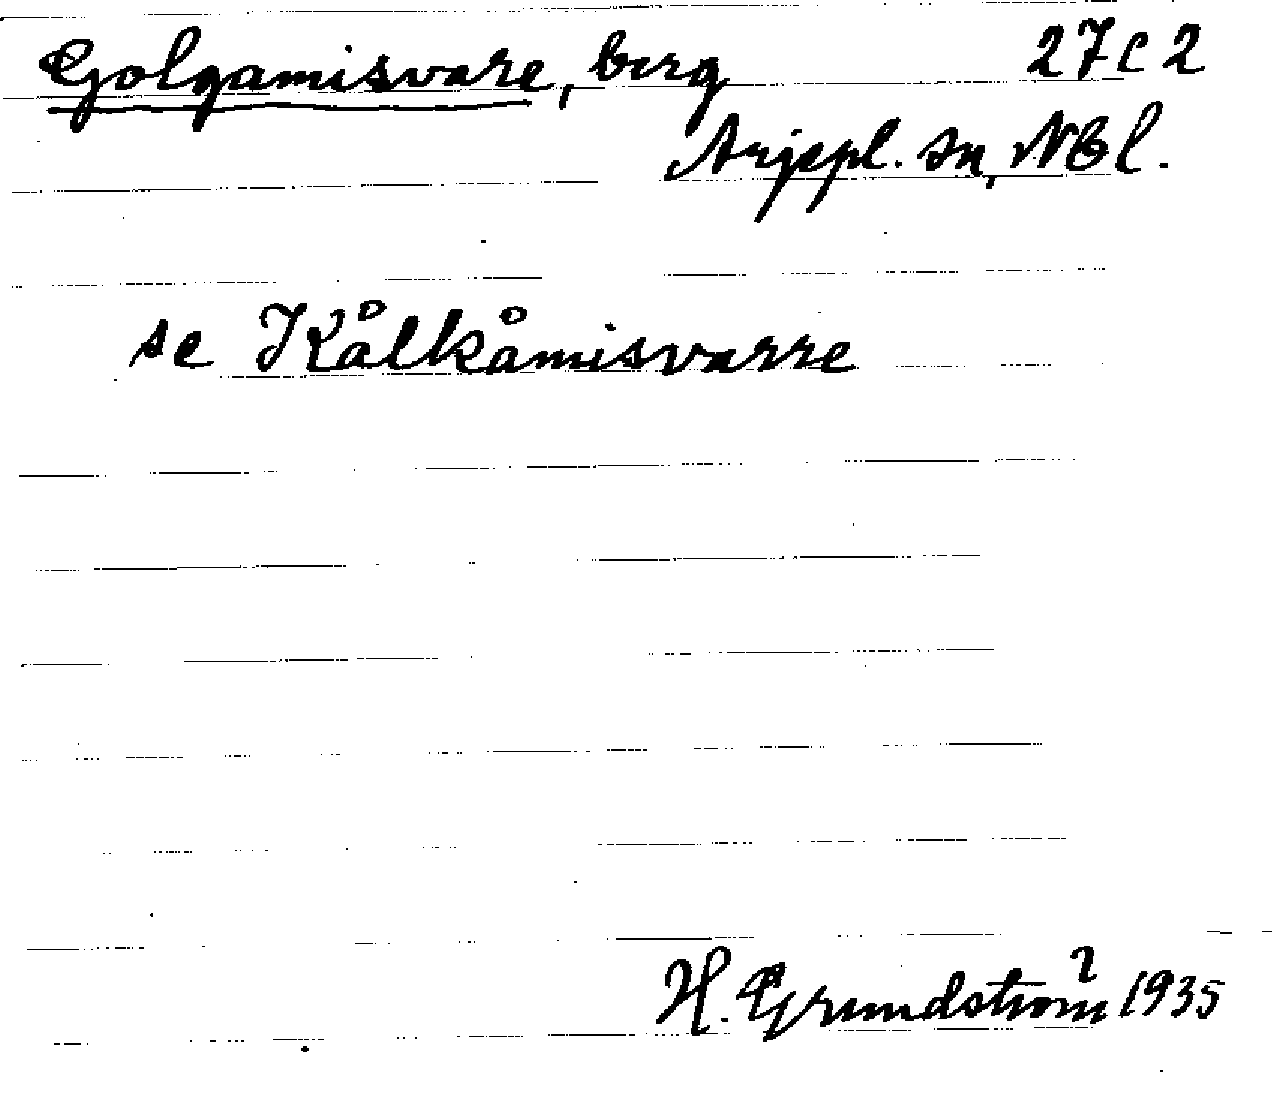 Golgamisvare, berg 27C2
Arjepl. sn, Nbl.
se Kålkåmisvarre
H. Grundström 1935